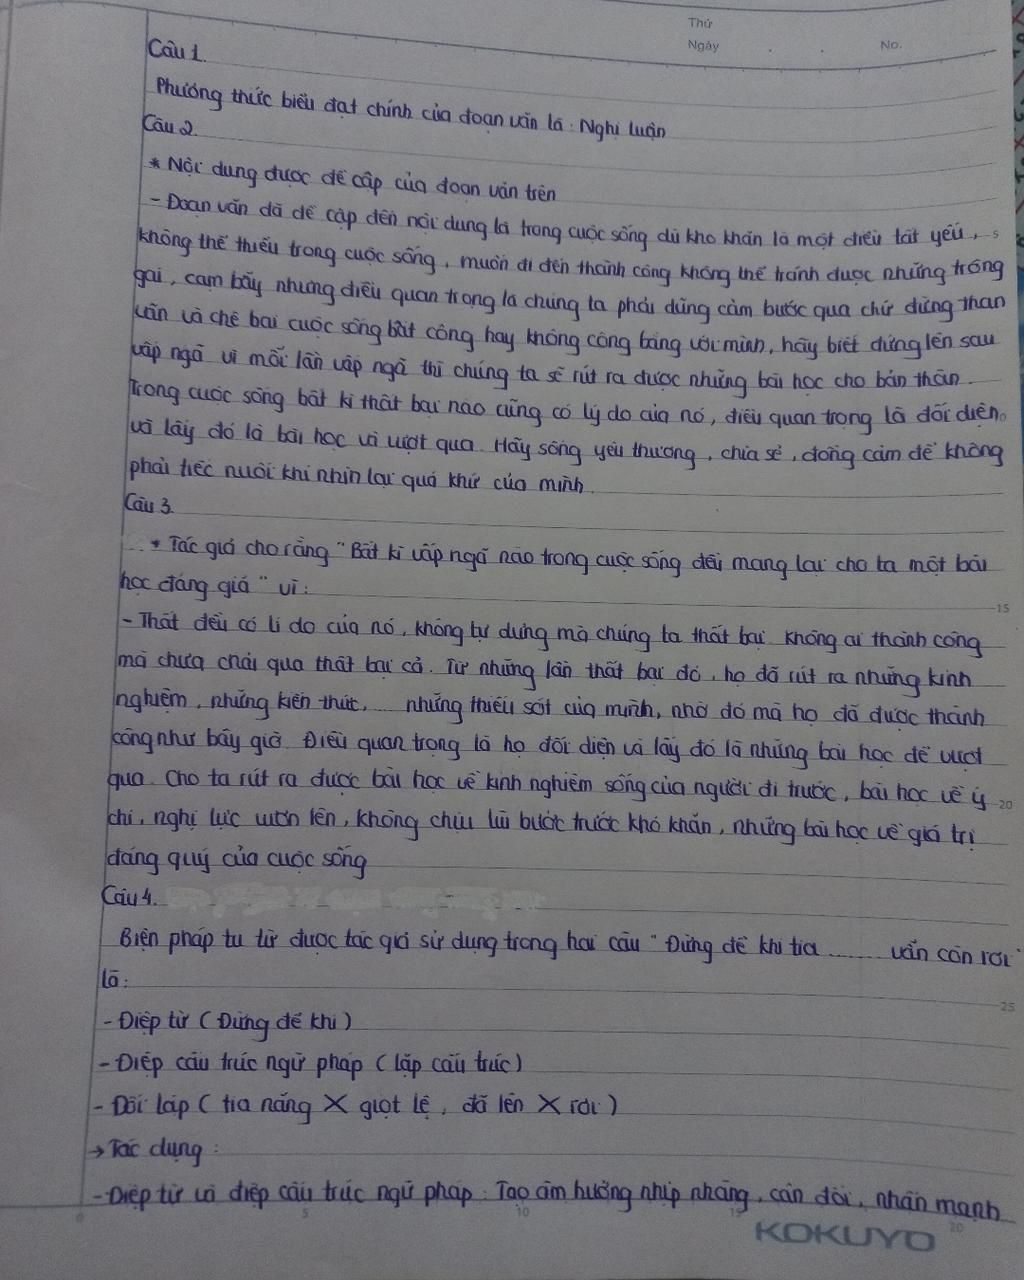 Thứ
Ngày . . No.
Câu 1.
Phương thức biểu đạt chính của đoạn văn là : Nghị luận
Câu 2.
* Nội dung được đề cập của đoạn văn trên
- Đoạn văn đã đề cập đến nội dung là trong cuộc sống dù khó khăn là một điều tất yếu, 5
không thể thiếu trong cuộc sống, muốn đi đến thành công không thể tránh được những trông
gai, cạm bẫy nhưng điều quan trọng là chúng ta phải dũng cảm bước qua chứ đừng than
vãn và chê bai cuộc sống bất công hay không công bằng với mình, hãy biết đứng lên sau
vấp ngã vì mỗi lần vấp ngã thì chúng ta sẽ rút ra được những bài học cho bản thân.
Trong cuộc sống bất kì thất bại nào cũng có lý do của nó, điều quan trọng là đối diện
và lấy đó là bài học và vượt qua. Hãy sống yêu thương, chia sẻ, đồng cảm để không
phải tiếc nuối khi nhìn lại quá khứ của mình.
Câu 3.
* Tác giả cho rằng "Bất kì vấp ngã nào trong cuộc sống đều mang lại cho ta một bài
học đáng giá" vì: 15
- Thất đều có lí do của nó, không tự dưng mà chúng ta thất bại. Không ai thành công
mà chưa chải qua thất bại cả. Từ những lần thất bại đó, họ đã rút ra những kinh
nghiệm, những kiến thức, những thiếu sót của mình, nhờ đó mà họ đã được thành
công như bây giờ. Điều quan trọng là họ đối diện và lấy đó là những bài học để vượt
qua. Cho ta rút ra được bài học về kinh nghiệm sống của người đi trước, bài học về ý 20
chí, nghị lực vươn lên, không chịu lùi bước trước khó khăn, những bài học về giá trị
đáng quý của cuộc sống
Câu 4.
Biện pháp tu từ được tác giả sử dụng trong hai câu "Đừng để khi tia ...... vẫn còn rơi"
là: 25
- Điệp từ (Đừng để khi)
- Điệp cấu trúc ngữ pháp (lặp cấu trúc)
- Đối lập (tia nắng X giọt lệ, đã lên X rơi)
→ Tác dụng :
- Điệp từ và điệp cấu trúc ngữ pháp: Tạo âm hưởng nhịp nhàng, cân đối, nhấn mạnh
0 5 10 15 20
KOKUYO